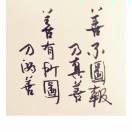 善不圖報
乃真善
善有所圖
乃伪善